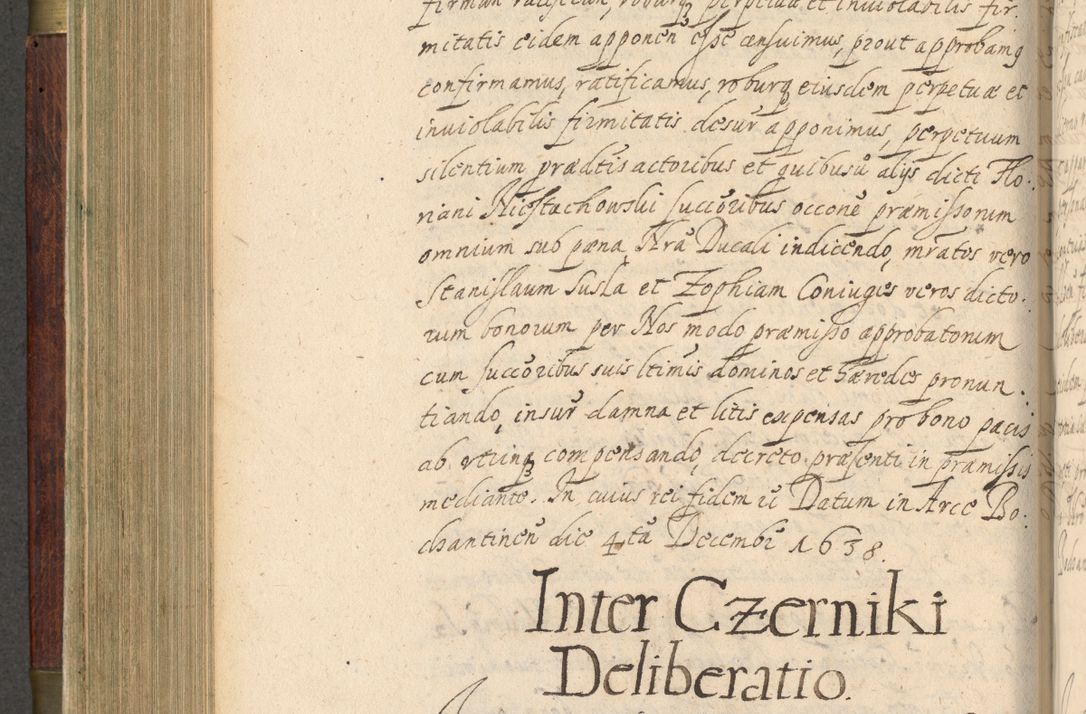 mitatis eidem apponen̄ esse censuimus, prout approbamq
confirmamus, ratificamus, roburq eiusdem perpetuæ et
inuiolabilis firmitatis desup̄ apponimus, perpetuum
silentium prædtis actoribus et quibusū alijs dicti Flo:
riani Niestachowski succōribus occōne præmissorum
omnium sub pæna Nrā Ducali indicendo, mrātos vero
Stanislaum Susla et Zophiam Coniuges veros dicto:
rum bonorum per Nos modo præmisso approbatorum
cum succōribus suis ltimis dominos et hæredes pronun:
tiando, insup̄ damna et litis expensas pro bono pacis
ab vtrinq compensando, decreto præsenti in præmissis
mediante. In cuius rei fidem ic̄ Datum in Arce Bo:
chantinen̄ die 4tā Decembr̄ 1638.
Inter Czerniki
Deliberatio.